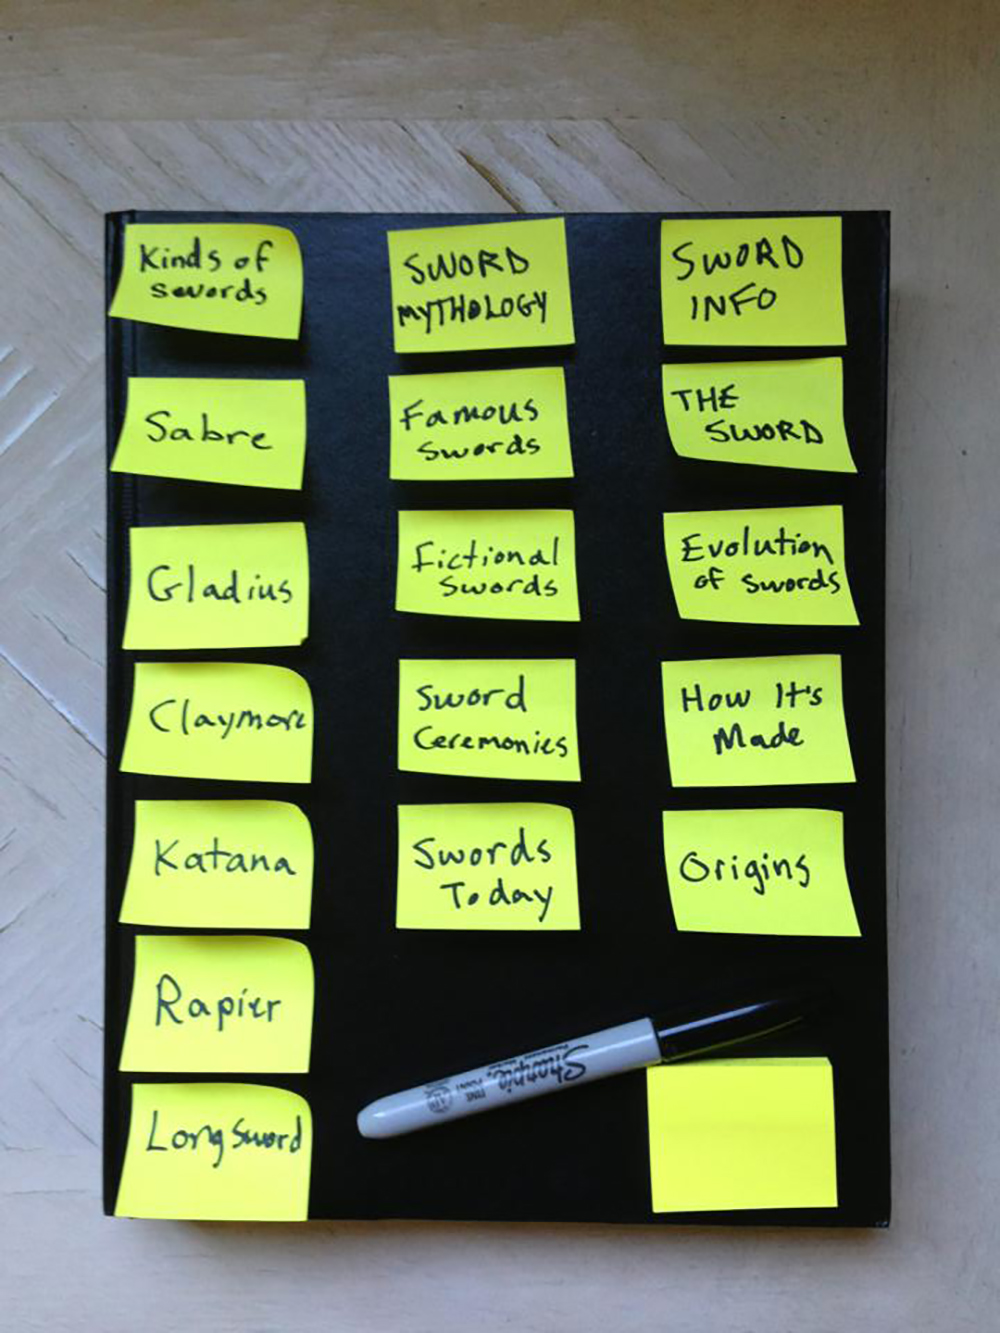 Kinds of
swords
Sabre
Gladius
Claymore
Katana
Rapier
Long Sword
SWORD
MYTHOLOGY
Famous
Swords
Fictional
Swords
Sword
Ceremonies
Swords
Today
SWORD
INFO
THE
SWORD
Evolution
of Swords
How It's
Made
Origins
Sharpie
FINE
POINT